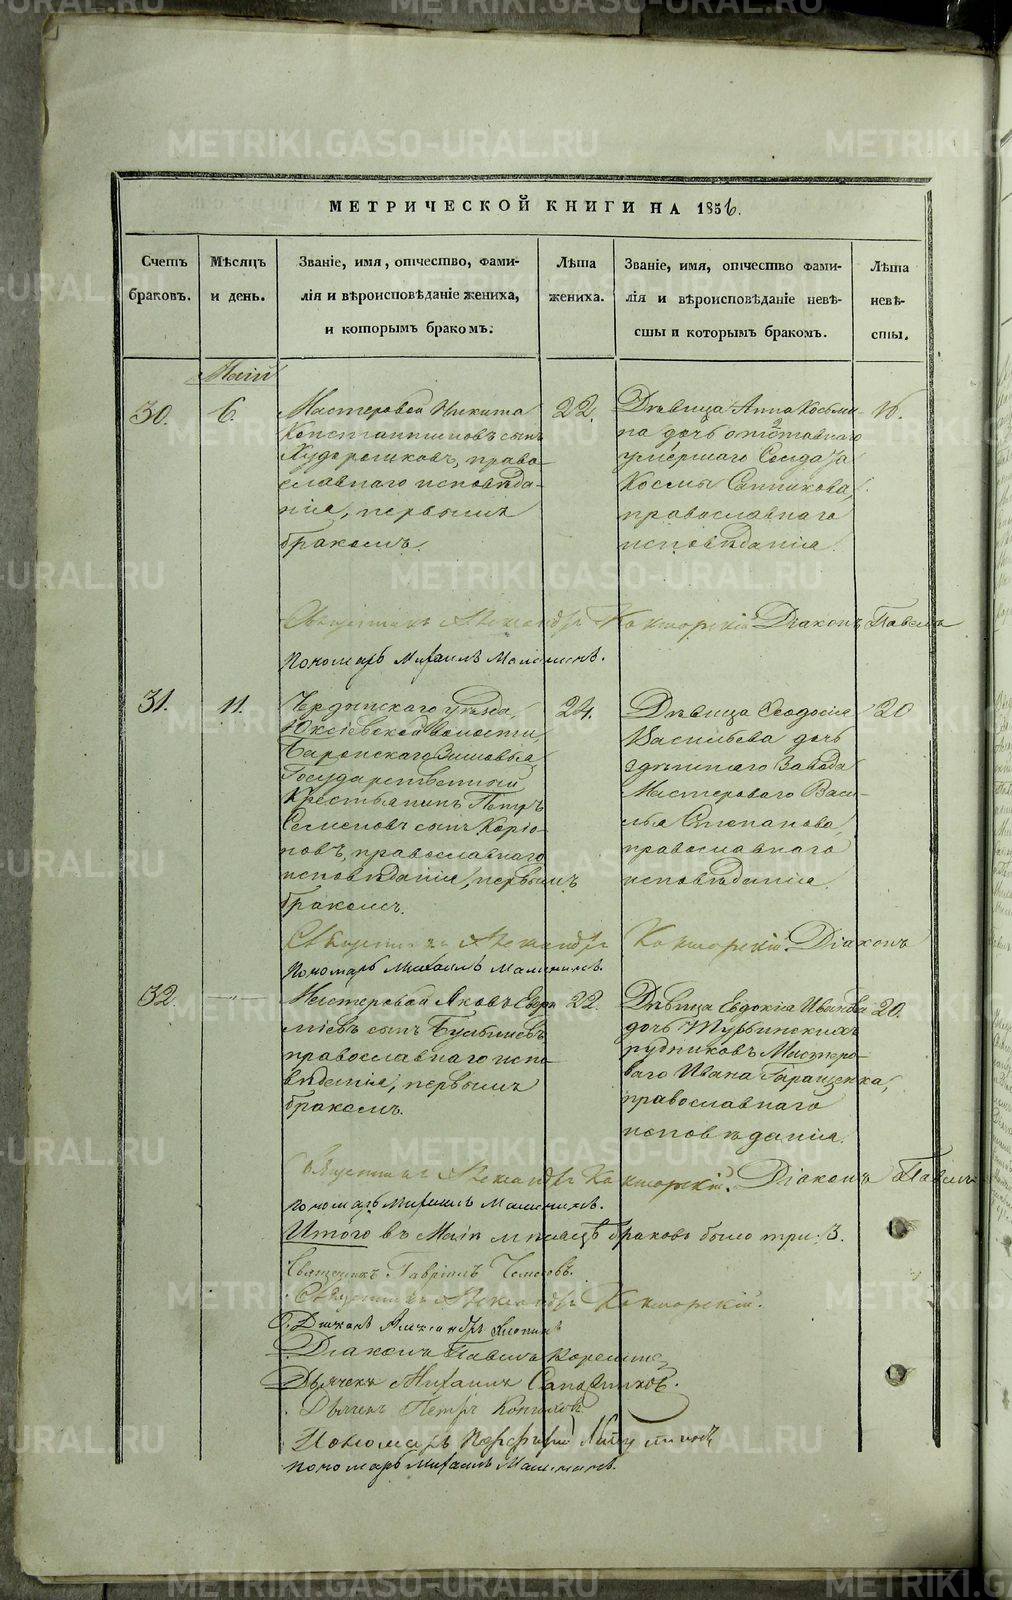 МЕТРИЧЕСКОЙ КНИГИ НА 1856.
Счетъ браковъ.
Мѣсяцъ и день.
Званіе, имя, отчество, фами-
лія и вѣроисповѣданіе жениха,
и которымъ бракомъ.
Лѣта жениха.
Званіе, имя, отчество фами-
лія и вѣроисповѣданіе невѣ-
сты и которымъ бракомъ.
Лѣта невѣ-
сты.
Маій
30.
6.
Мастеровой Никита
Константиновъ сынъ
право-
славнаго исповѣда-
нія, первымъ
бракомъ.
22.
Дѣвица Анна Косьми-
на дочь отставнаго
умершаго Солдата
Космы Санникова,
православнаго
исповѣданія.
16.
Священникъ Александръ Діаконъ Павелъ
Пономарь Михаилъ
31.
11.
Чердынскаго уѣзда,
Юксѣевской волости,
Государственный
Крестьянинъ Петръ
Семеновъ сынъ
православнаго
исповѣданія, первымъ
бракомъ.
24.
Дѣвица Ѳеодосія
Васильева дочь
здѣшняго Завода
Мастероваго Васи-
лья Степанова,
православнаго
исповѣданія.
20
Священникъ Александръ Діаконъ
Пономарь Михаилъ
32.
Мастеровой Яковъ
сынъ
православнаго испо-
вѣданія, первымъ
бракомъ.
22.
Дѣвица Евдокія Иванова
дочь Турьинскихъ
рудниковъ Мастеро-
ваго Ивана Гаращенка,
православнаго
исповѣданія.
20.
Священникъ Александръ Діаконъ Павелъ
Пономарь Михаилъ
Итого въ Маіи мѣсяцѣ браковъ было три. 3.
Священникъ Гавріилъ
Священникъ Александръ
Діаконъ Александръ
Діаконъ Павелъ
Дьячекъ Михаилъ Сапожниковъ.
Дьячекъ Петръ
Пономарь Порфирій
Пономарь Михаилъ
METRIKI.GASO-URAL.RU